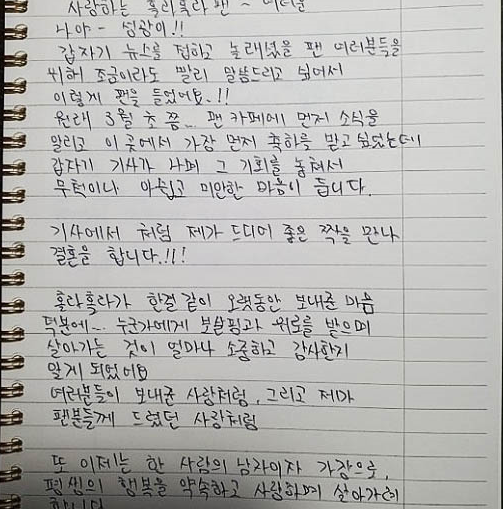 사랑하는 훌라훌라 팬~ 여러분
나야~ 성황이!!
갑자기 뉴스를 접하고 놀래셨을 팬 여러분들을
위해 조금이라도 빨리 말씀드리고 싶어서
이렇게 펜을 들었어요.!!
원래 3월 초 쯤.. 팬 카페에 먼저 소식을
알리고 이 곳에서 가장 먼저 축하를 받고 싶었는데
갑자기 기사가 나와 그 기회를 놓쳐서
무척이나 아쉽고 미안한 마음이 듭니다.
기사에서 처럼 제가 드디어 좋은 짝을 만나
결혼을 합니다.!!!
훌라훌라가 한결 같이 오랫동안 보내준 마음
덕분에~. 누군가에게 보살핌과 위로를 받으며
살아가는 것이 얼마나 소중하고 감사한지
알게 되었어요
여러분들이 보내준 사랑처럼, 그리고 제가
팬분들께 드렸던 사랑처럼
또 이제는 한 사람의 남자이자 가장으로,
평생의 행복을 약속하고 사랑하며 살아가려
합니다